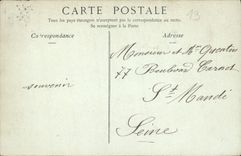 CARTE POSTALE
Tous les pays étrangers n'acceptent pas la correspondance au recto.
Se renseigner à la Poste
Correspondance
Adresse
Monsieur et Me Quentin
77 Boulevard Carnot
souvenir
St Mandé
Seine